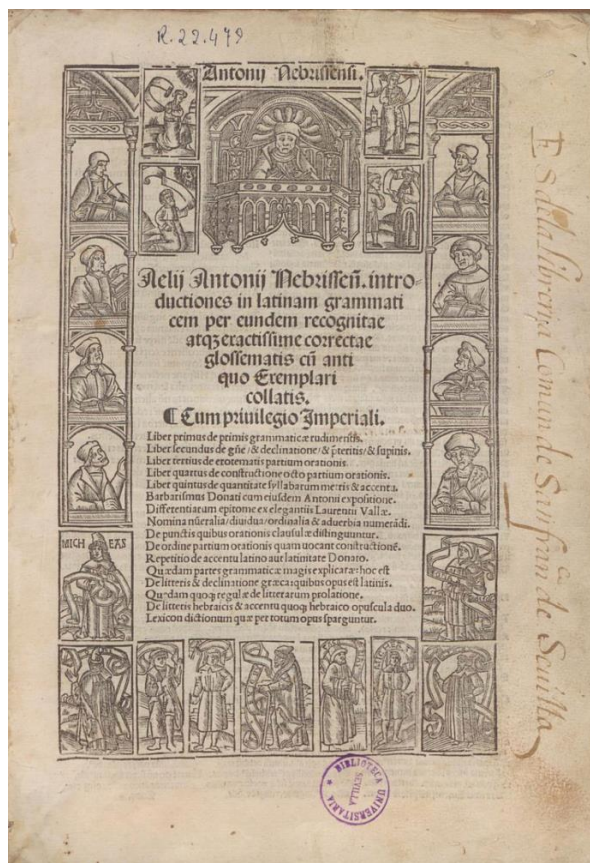 R. 22.479
Antonij Nebrissensi.
Aelij Antonij Nebrisseñ. intro-
ductiones in latinam grammati
cem per eundem recognitae
atqꝫ exactissime correctae
glossematis cũ anti
quo Exemplari
collatis.
¶ Cum priuilegio Imperiali.
Liber primus de primis grammaticæ rudimentis.
Liber secundus de gñe/ & declinatione/ & p̃teritis/ & supinis.
Liber tertius de erotematis partium orationis.
Liber quartus de constructione octo partium orationis.
Liber quintus de quantitate syllabarum metris & accentu.
Barbarismus Donati cum eiusdem Antonii expositione.
Differentiarum epitome ex elegantiis Laurentii Vallæ.
Nomina nũeralia/ diuidua/ ordinalia & aduerbia numerãdi.
De punctis quibus orationis clausulæ distinguuntur.
De ordine partium orationis quam uocant constructionẽ.
Repetitio de accentu latino aut latinitate Donato.
Quædam partes grammaticæ magis explicatæ: hoc est
De litteris & declinatione græca: quibus opus est latinis.
Quædam quoqꝫ regulæ de litterarum prolatione.
De litteris hebraicis & accentu quoqꝫ hebraico opuscula duo.
Lexicon dictionum quæ per totum opus sparguntur.
MICHEAS
Es de la libreria Comun de San fran.co de Seuilla
BIBLIOTECA UNIVERSITARIA
SEVILLA